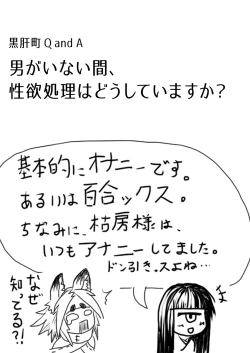 黒肝町 Q and A
男がいない間、
性欲処理はどうしていますか？
基本的にオナニーです。
あるいは百合ックス。
ちなみに、枯房様は、
いつもアナニーしてました。
ドン引きっスよね…
なぜ
知ってる？！